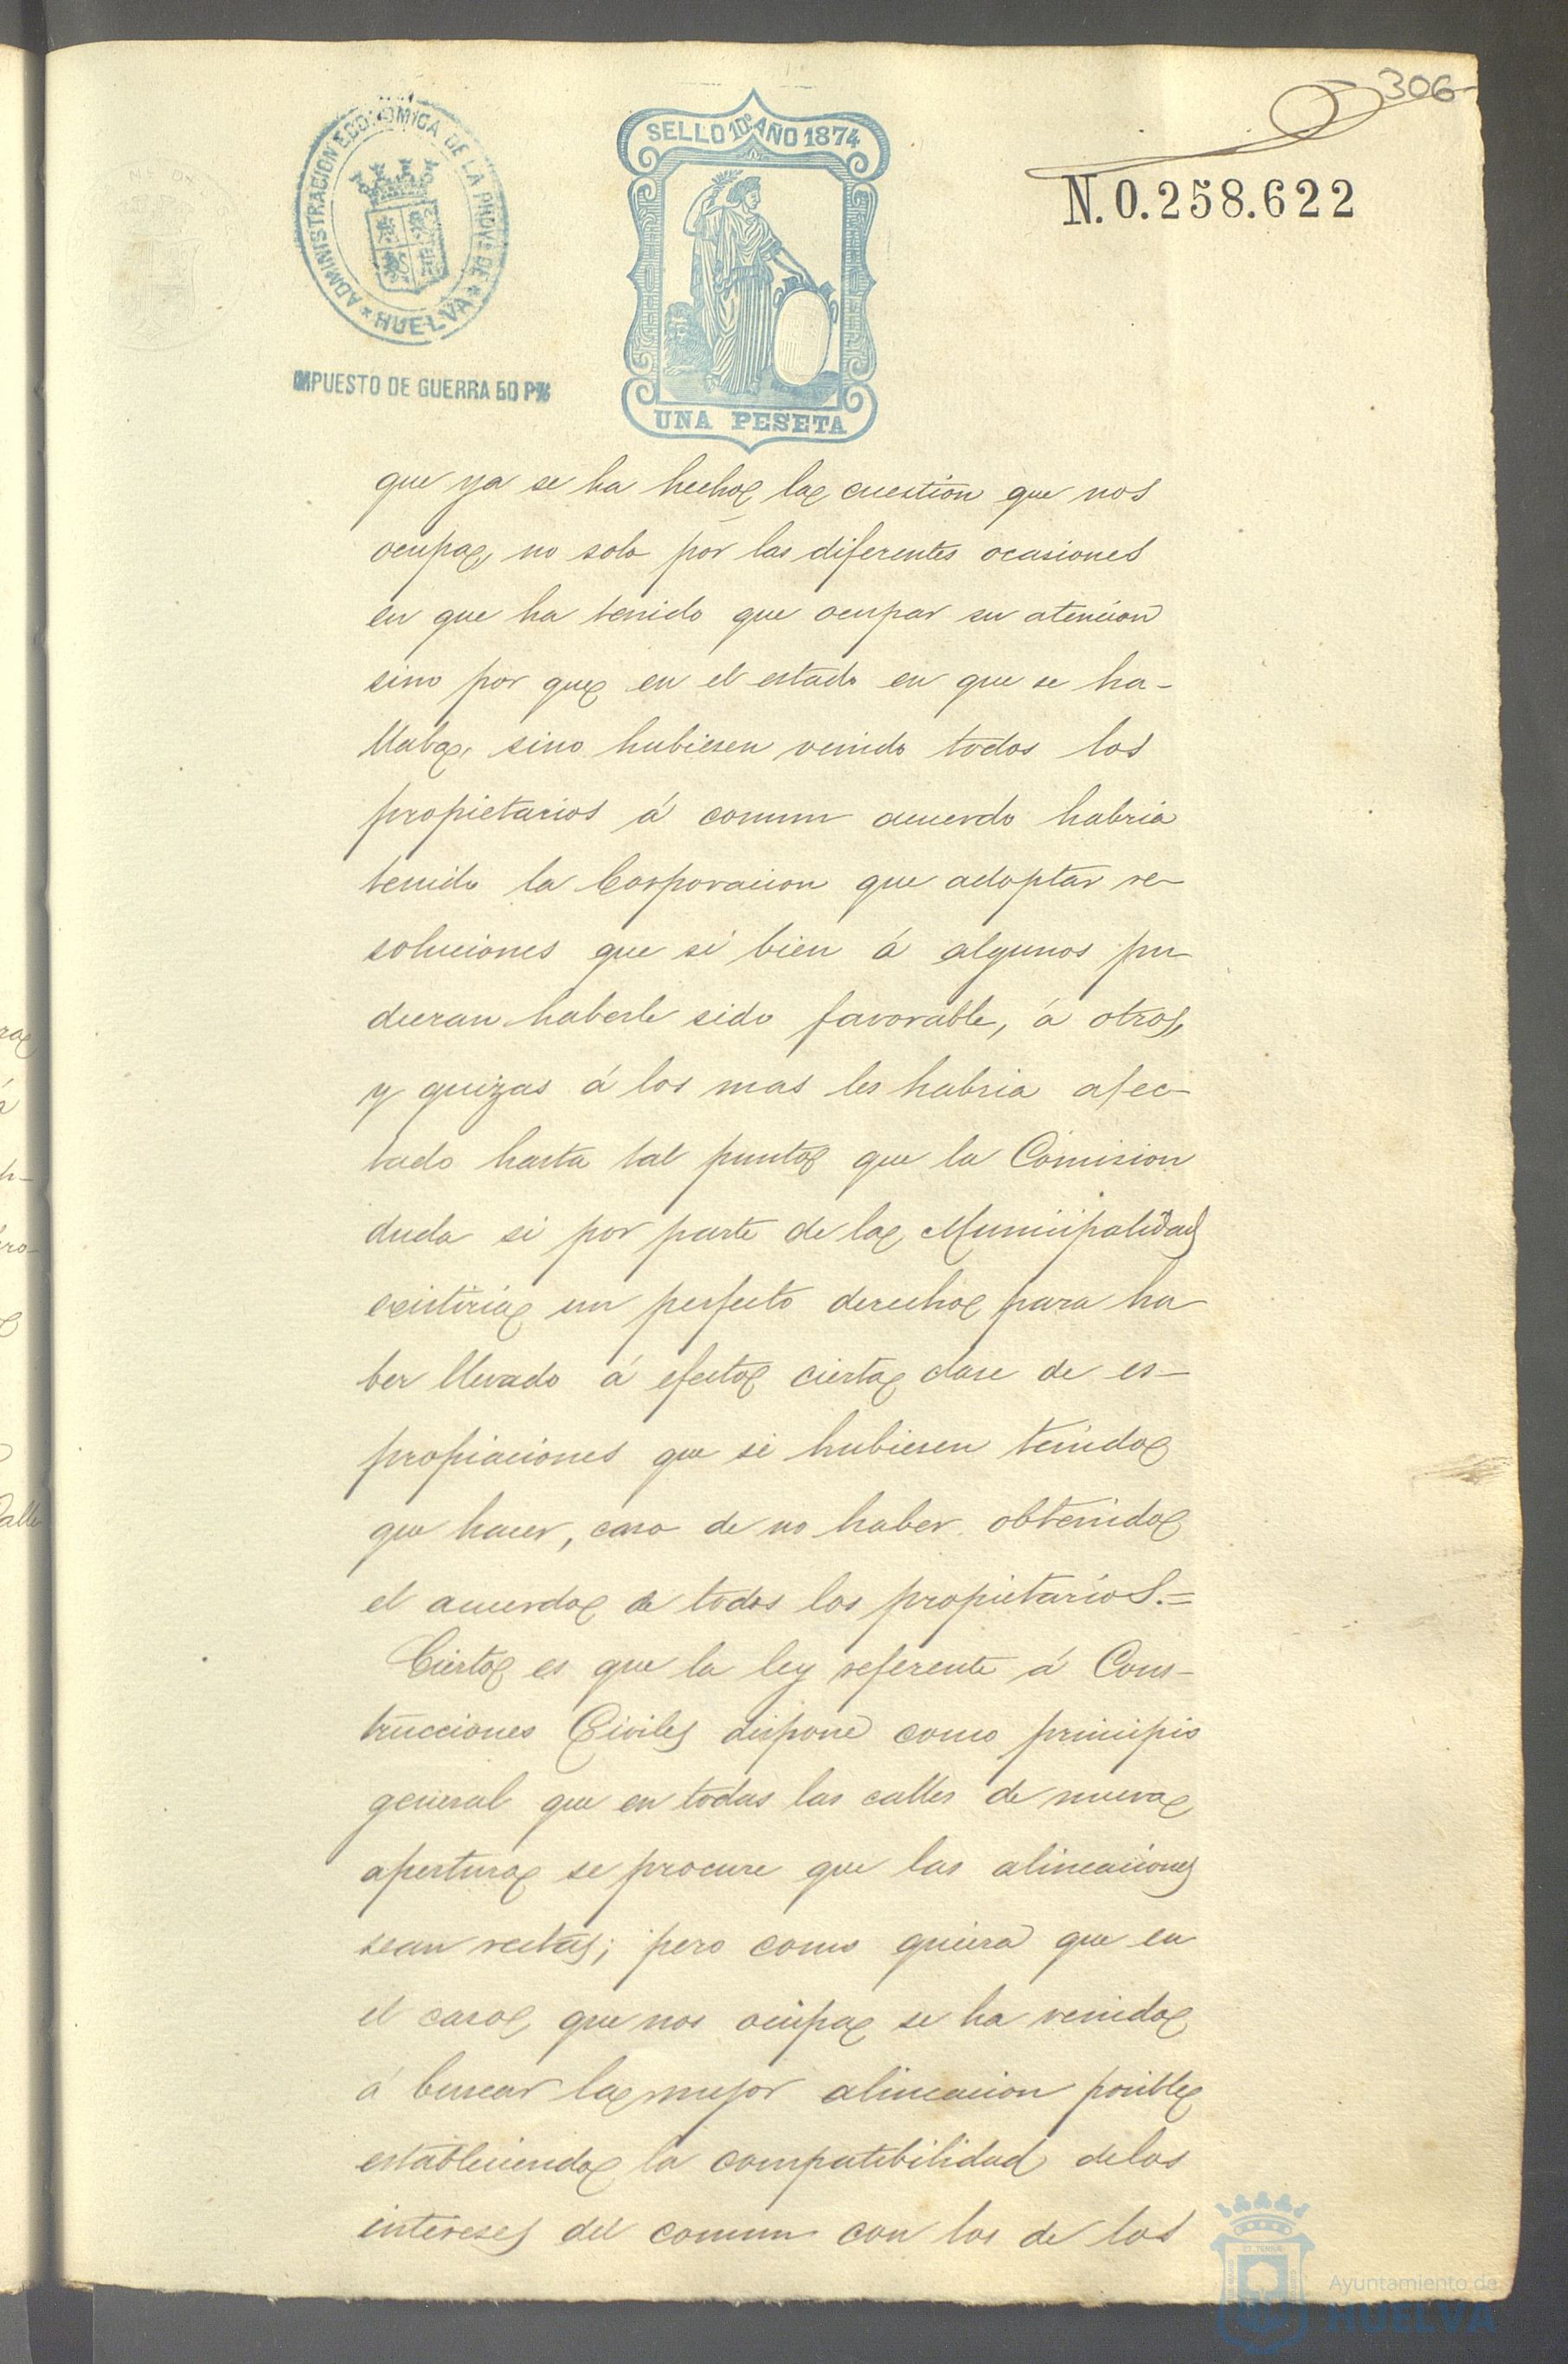 306
ADMINISTRACION ECONOMICA DE LA PROVª DE * HUELVA *
SELLO 10º AÑO 1874
N. 0.258.622
IMPUESTO DE GUERRA 50 P%
UNA PESETA
que ya se ha hecho la cuestion que nos
ocupa, no solo por las diferentes ocasiones
en que ha tenido que ocupar su atencion
sino por que en el estado en que se ha-
llaba, sino hubiesen venido todos los
propietarios á comun acuerdo habria
tenido la Corporacion que adoptar re-
soluciones que si bien á algunos pu
dieran haberle sido favorable, á otros,
y quizas á los mas les habria afec-
tado hasta tal punto que la Comision
duda si por parte de la Municipalidad
existiria un perfecto derecho para ha
ber llevado á efecto cierta clase de es-
propiaciones que si hubiesen tenido
que hacer, caso de no haber obtenido
el acuerdo de todos los propietarios.=
Cierto es que la ley referente á Cons-
trucciones Civiles dispone como principio
general que en todas las calles de nueva
apertura se procure que las alineaciones
sean rectas; pero como quiera que en
el caso, que nos ocupa se ha venido
á buscar la mejor alineacion posible
estableciendo la compatibilidad de los
intereses del comun con los de los
Ayuntamiento de
HUELVA